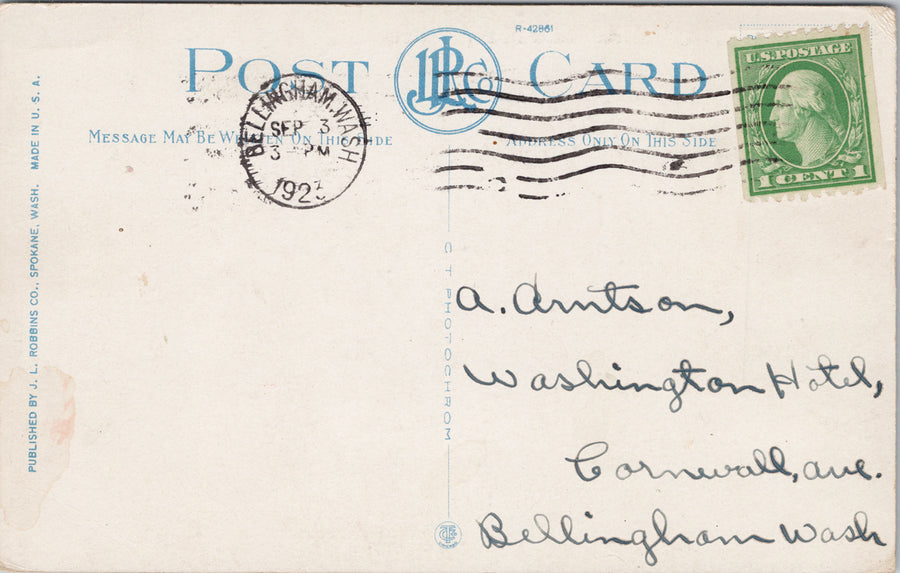 R-42861
POST CARD
JLR Co
U.S. POSTAGE
1 CENT 1
BELLINGHAM, WASH
SEP 3
3 - PM
MESSAGE MAY BE WRITTEN ON THIS SIDE
ADDRESS ONLY ON THIS SIDE
PUBLISHED BY J. L. ROBBINS CO., SPOKANE, WASH. MADE IN U. S. A.
C T PHOTOCHROM
A. Arntson,
Washington Hotel,
Cornwall, ave.
Bellingham Wash